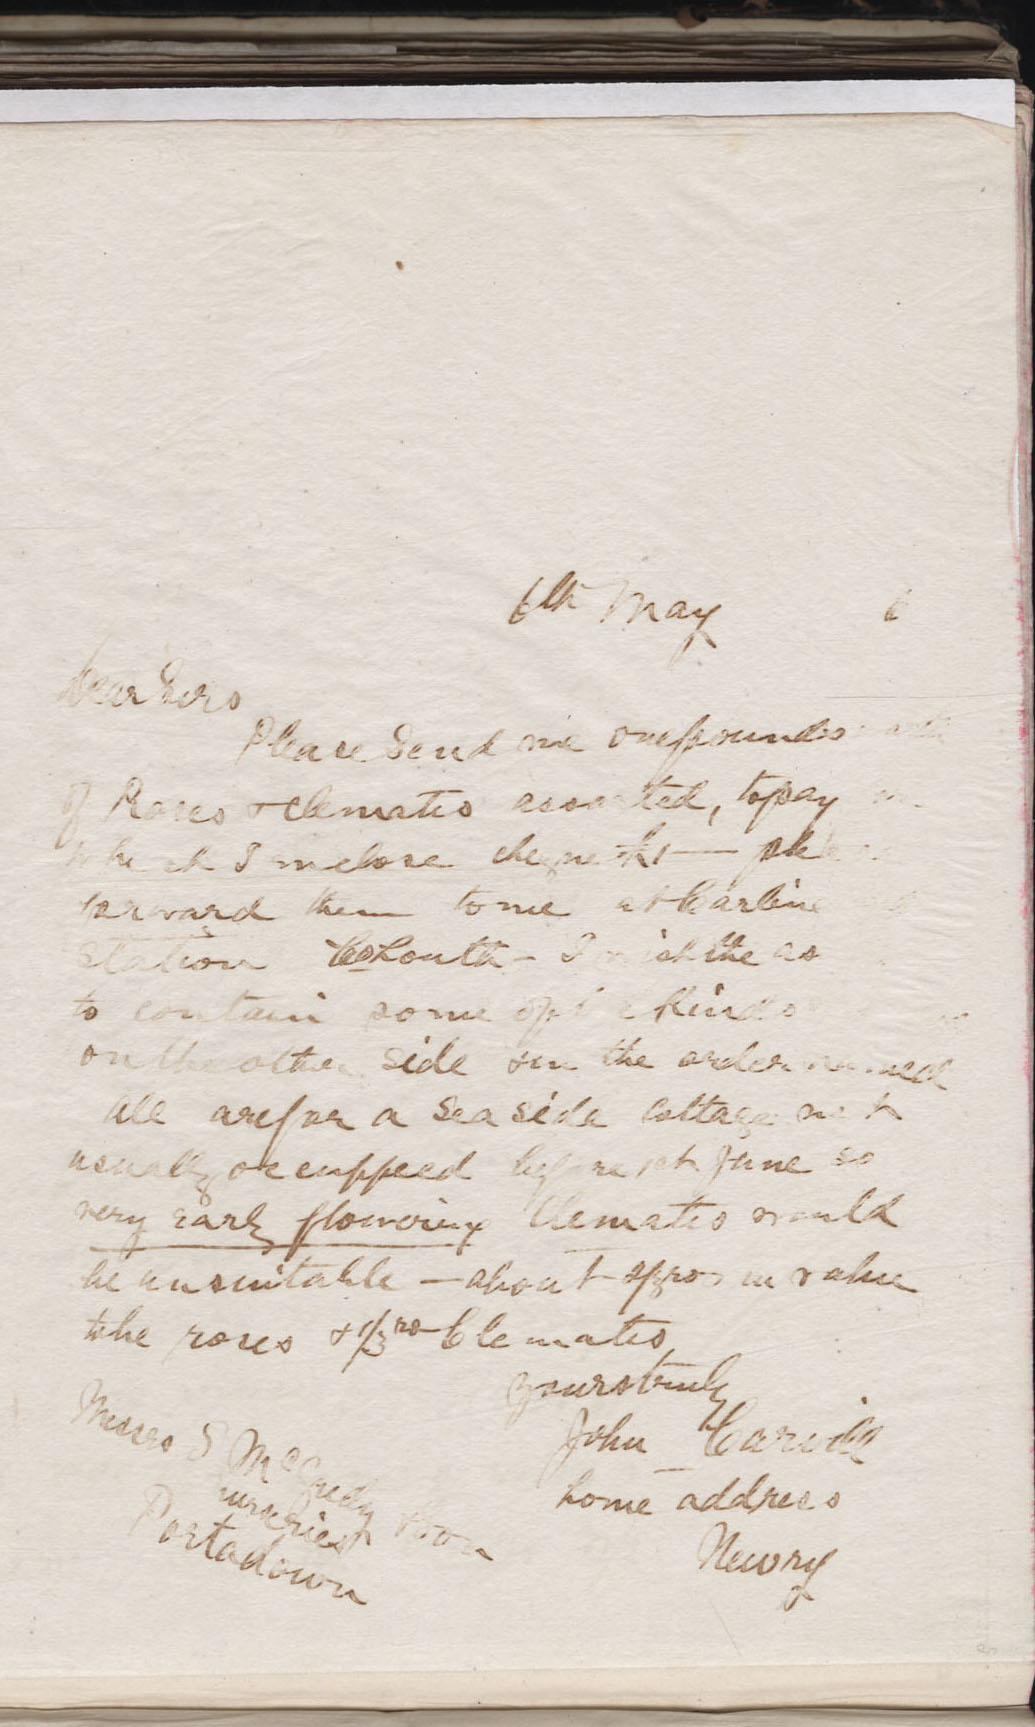 6th May 6
Dear Sirs
Please Send me one pounds worth
of Roses & Clematis assorted, to pay
which I inclose cheque
forward them to me at Carling
station Co Louth - I wish the
to contain some of kinds
on the other side in the order named
All are for a Sea side Cottage not
usually occuppeed before 1st June so
very early flowering Clematis would
be unsuitable — about in value
to be roses & Clematis
yours truly
John Carvill
home address
Newry
Messrs S McGredy & Son
nurseries
Portadown